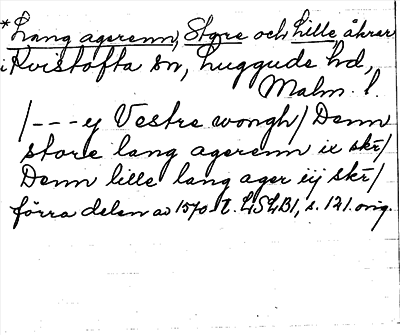 *Lang agerenn, Store och Lille åkrar
i Kvistofta sn, Luggude hd,
Malm. l.
/---ej Vestre wongh/ Denn
store lang agerenn ix skr/
Denn lille lang ager iij skr/
förra delen av 1570-t. LSLB1, s. 121. orig.